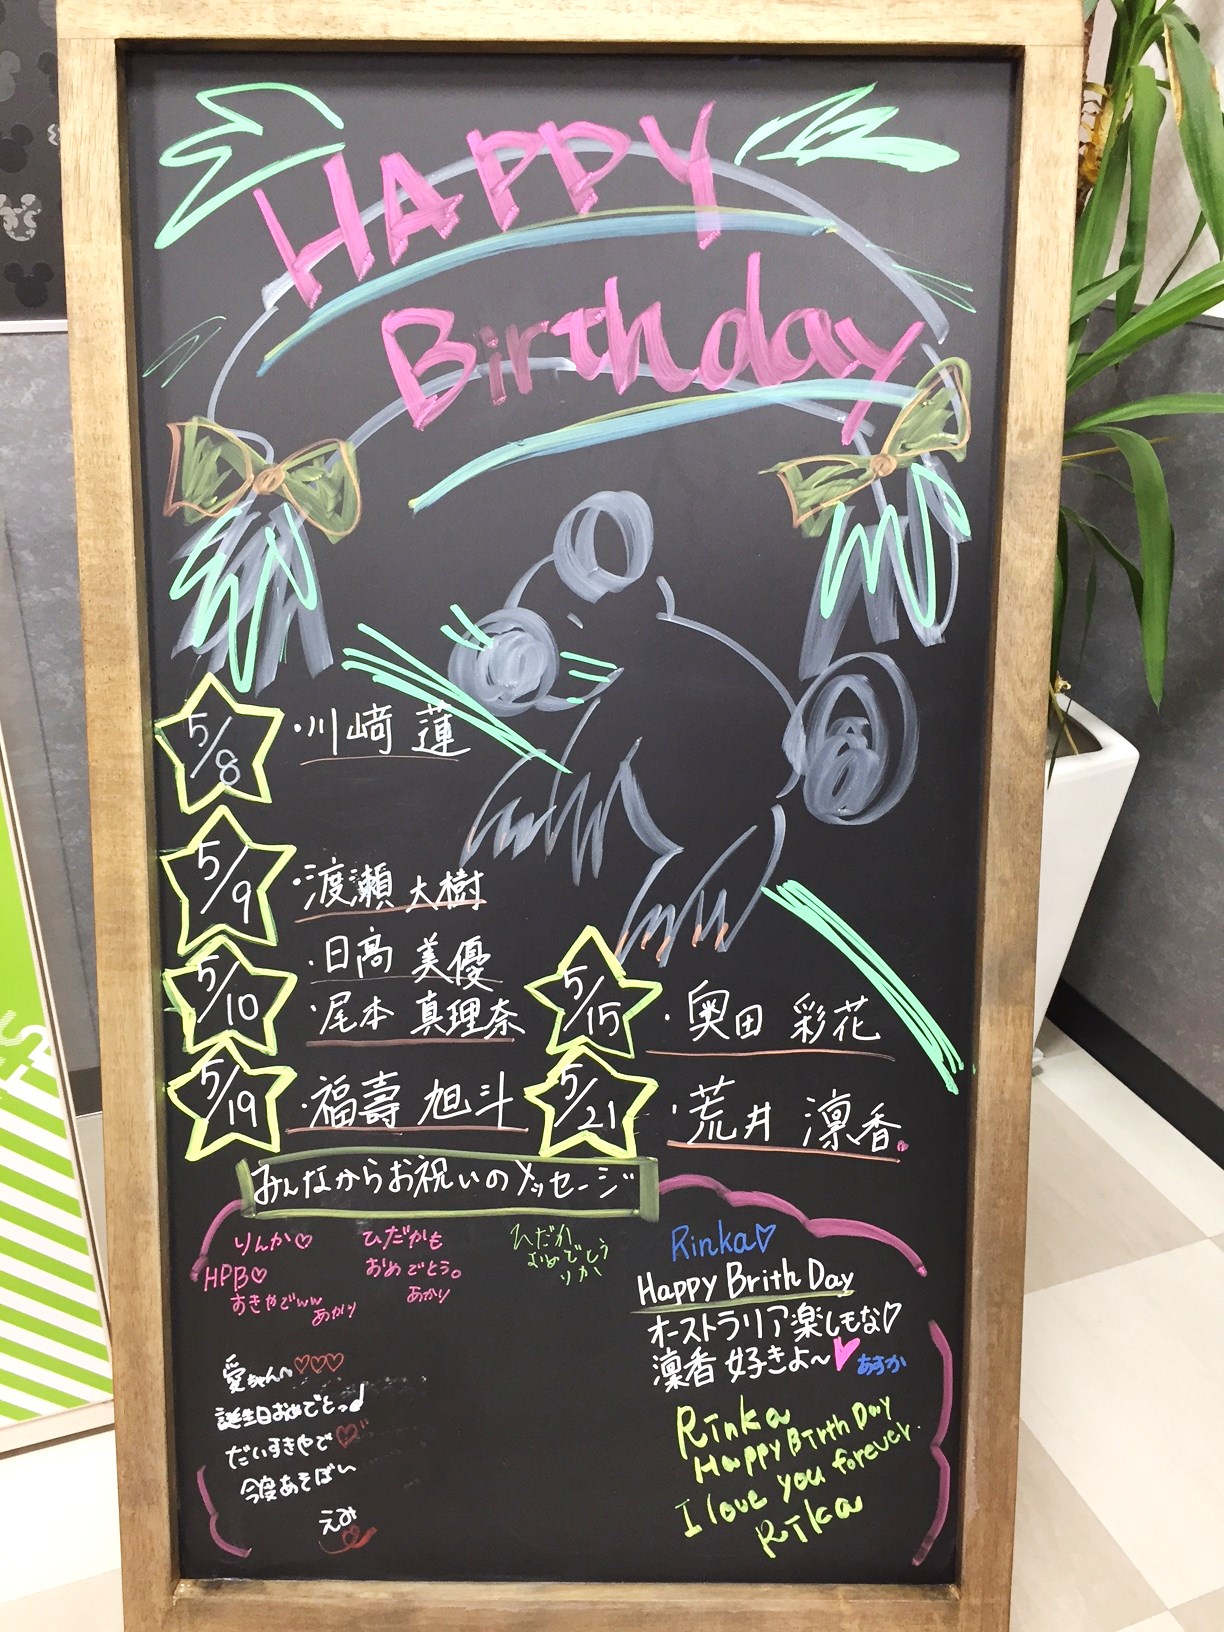 HAPPY
Birthday
5/8
・川﨑 蓮
5/9
・渡瀬 大樹
5/10
・日高 美優
・尾本 真理奈
5/15
・奥田 彩花
5/19
・福壽 旭斗
5/21
・荒井 凛香
みんなからお祝いのメッセージ
りんか♡
HPB♡
すきやでww
あかり
ひだかも
おめでとう。
あかり
ひだか
おめでとう
りか
Rinka♡
Happy Brith Day
オーストラリア楽しもな♡
凛香 好きよ〜♥ あすか
愛ちゃんへ♡♡♡
誕生日おめでとっ♪
だいすきやで♡
今度あそばい
えみ
Rinka
Happy Birth Day
I love you forever.
Rika